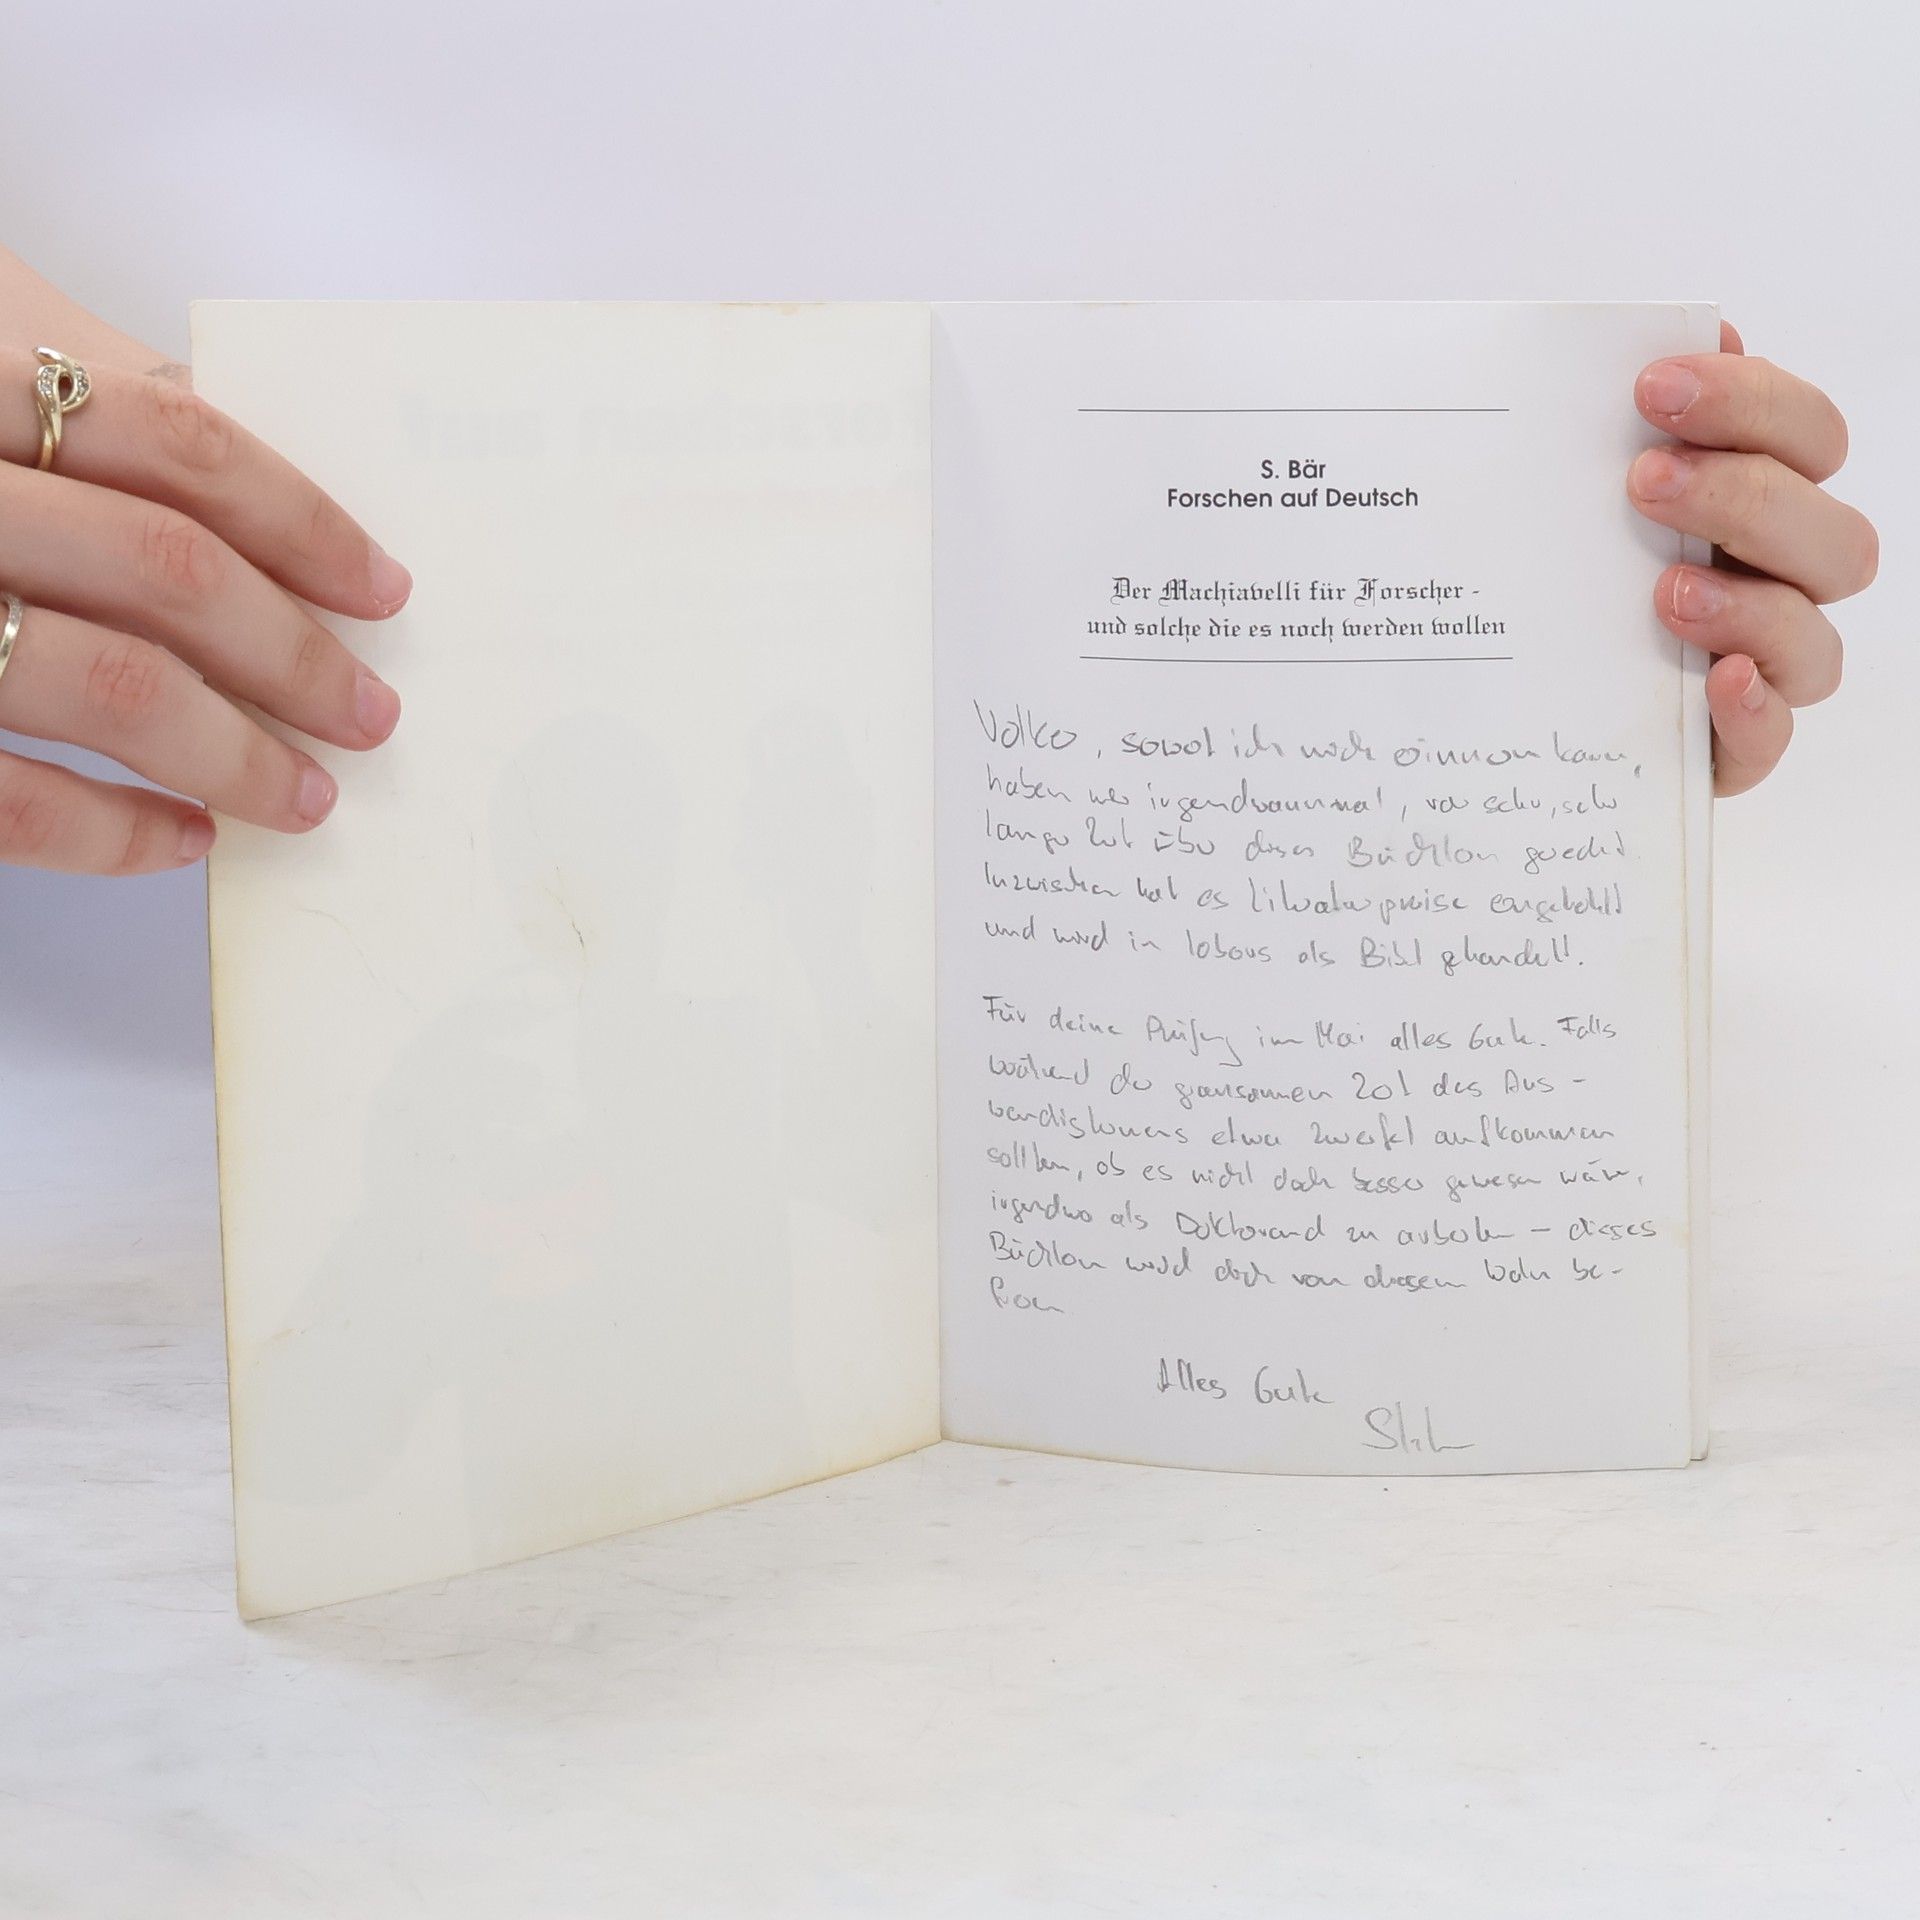 S. Bär
Forschen auf Deutsch
Der Machiavelli für Forscher -
und solche die es noch werden wollen
Volker, soviel ich mich erinnern kann,
haben wir irgendwannmal, vor sehr, sehr
langer Zeit über dieses Büchlein geredet.
Inzwischen hat es Literaturpreise eingeheimst
und wird in Labors als Bibel gehandelt.
Für deine Prüfung im Mai alles Gute. Falls
während der grausamen Zeit des Aus-
wendiglernens etwa Zweifel aufkommen
sollten, ob es nicht doch besser gewesen wäre,
irgendwo als Doktorand zu arbeiten – dieses
Büchlein wird dich von diesem Wahn be-
freien
Alles Gute